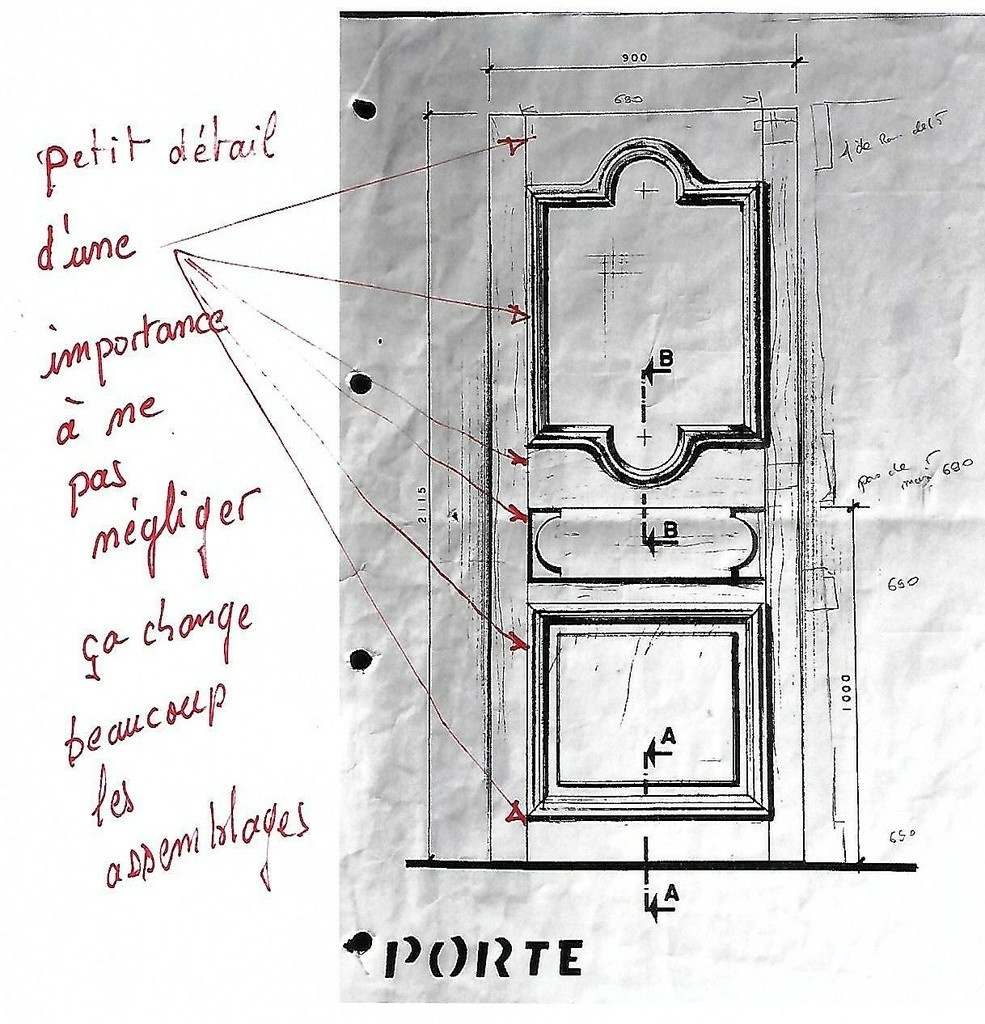 petit détail
d'une
importance
à ne
pas
négliger
ça change
beaucoup
les
assemblages
900
690
1 de de 5
B
2115
pas de
mais 690
B
690
1000
A
690
A
PORTE